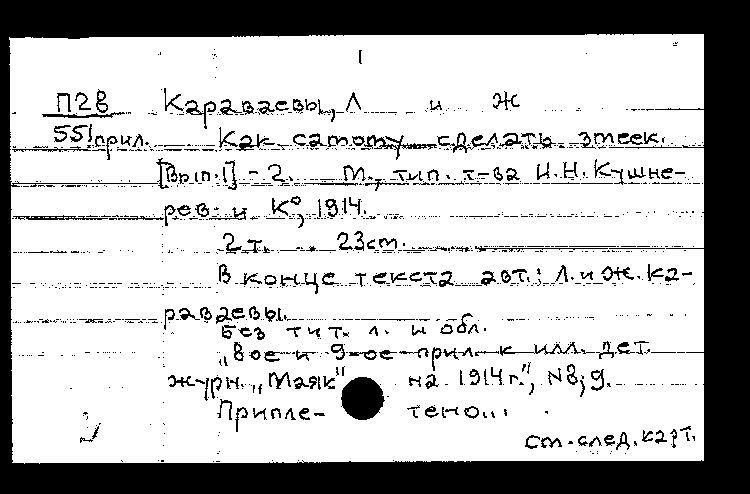 П28 Караваевы, Л и Ж
551прил. Как самому сделать змеек.
[Вып.1] - 2. М., тип. т-ва И.Н. Кушне-
рев и К°, 1914.
2 т. 23 см.
В конце текста авт.: Л. и Ж. Ка-
раваевы.
Без тит. л. и обл.
„8 ое и 9-ое прил. к илл. дет.
журн. „Маяк" на 1914 г.", N8, 9.
Припле- тено...
см. след. карт.